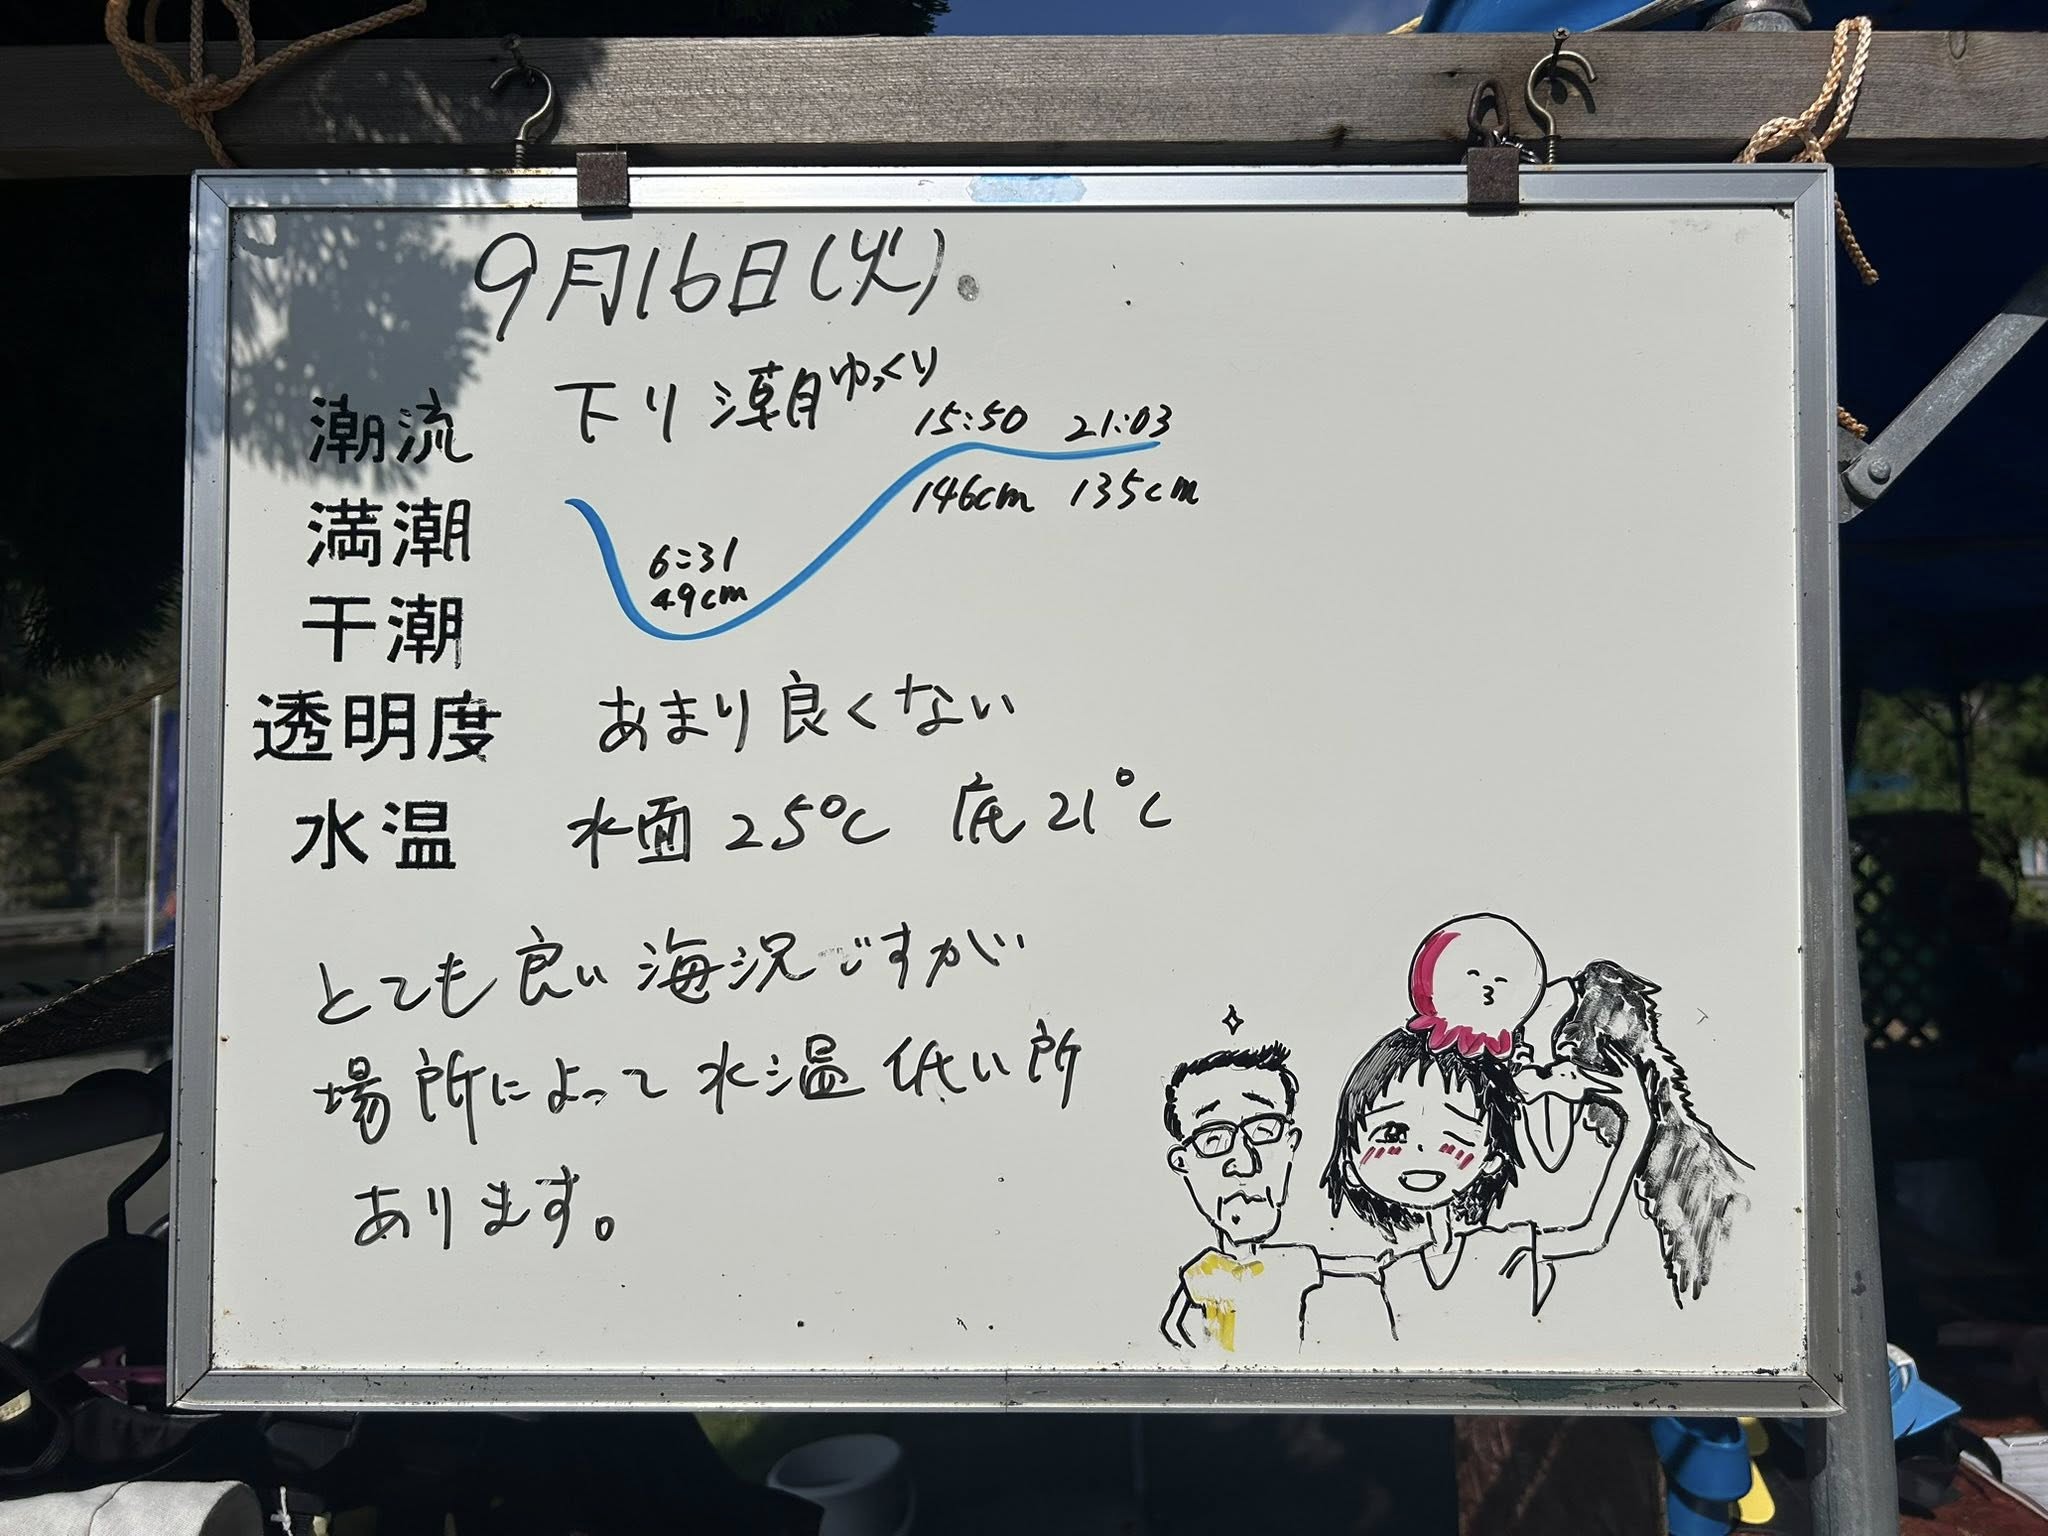 9月16日(火)
潮流 下り潮ゆっくり
15:50 21:03
満潮 146cm 135cm
6:31
49cm
干潮
透明度 あまり良くない
水温 水面25℃ 底21℃
とても良い海況ですが
場所によって水温低い所
あります。